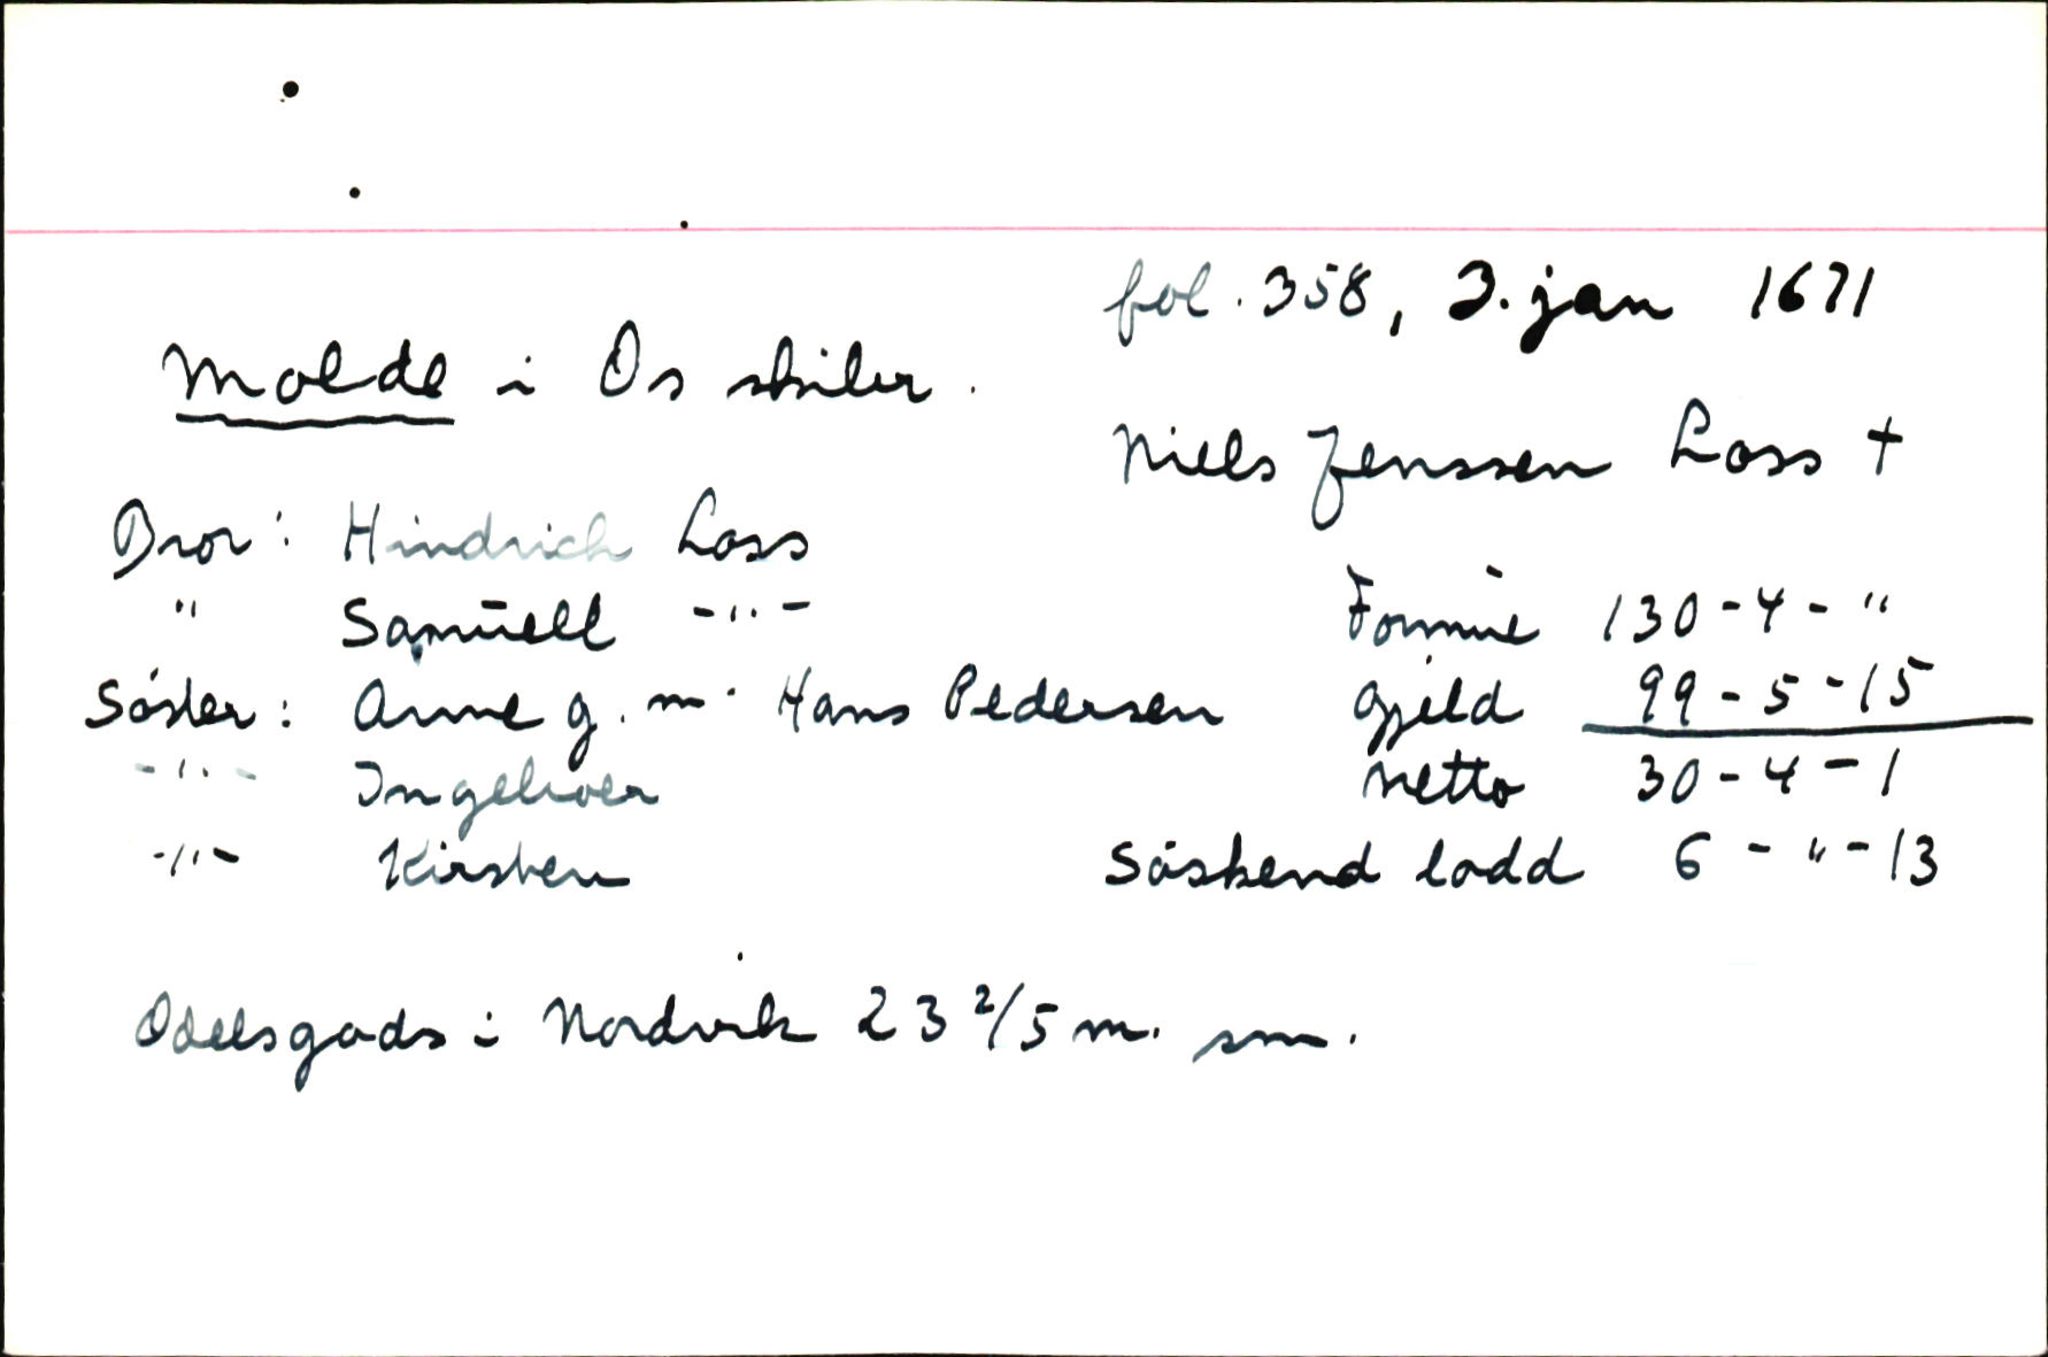 fol. 358, 3. jan 1671
Molde i Os skiler.
Niels Jenssen Lass +
Bror: Hindrich Lass
" Samuell -"-
Formue 130-4-"
Søster: Anne g. m. Hans Pedersen
Gjeld 99-5-15
-"- Ingeborg
Netto 30-4-1
-"- Kirsten
Søskend lodd 6-"-13
Odelsgods i Nordvik 23 2/5 m. sm.